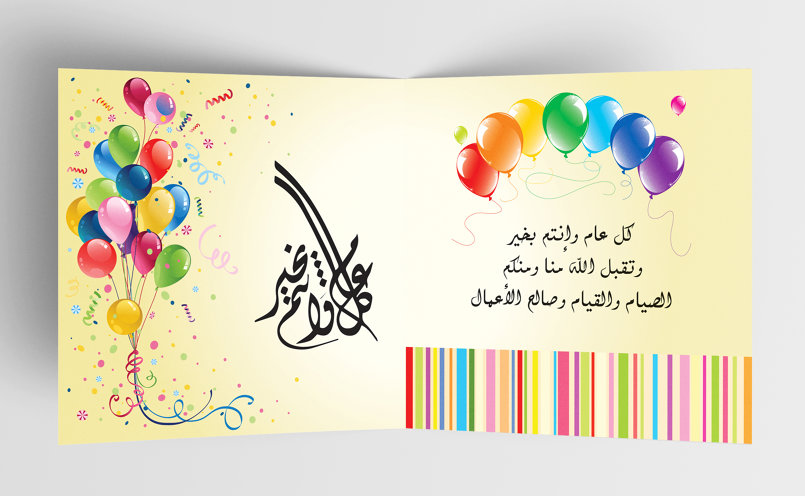 كل عام وانتم بخير
كل عام وانتم بخير
وتقبل الله منا ومنكم
الصيام والقيام وصالح الأعمال